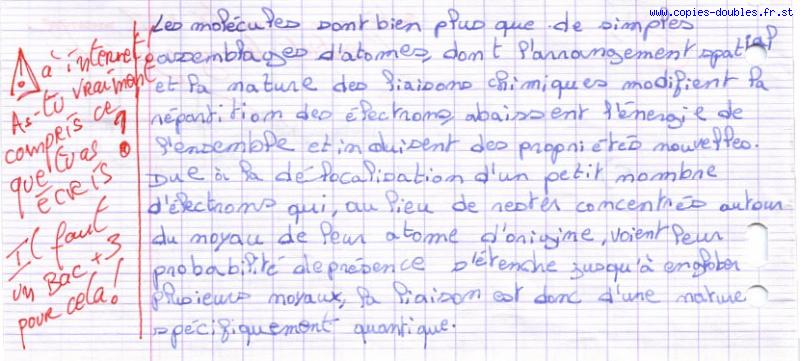 www.copies-doubles.fr.st
Les molécules sont bien plus que de simples
assemblages d'atomes, dont l'arrangement spatial
et la nature des liaisons chimiques modifient la
répartition des électrons, abaissent l'énergie de
l'ensemble et induisent des propriétés nouvelles.
Due à la délocalisation d'un petit nombre
d'électrons qui, au lieu de rester concentrés autour
du noyau de leur atome d'origine, voient leur
probabilité de présence s'étendre jusqu'à englober
plusieurs noyaux, la liaison est donc d'une nature
spécifiquement quantique.
⚠ à internet
As-tu vraiment
compris ce
que tu as
écris ?
Il faut
un Bac +3
pour cela!